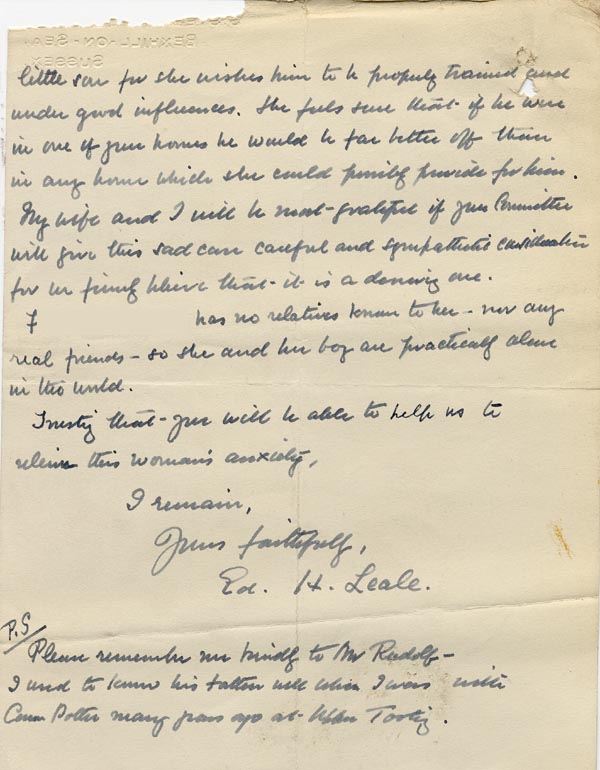 BEXHILL-ON-SEA.
SUSSEX
little son for she wishes him to be properly trained and
under good influences. She feels sure that if he were
in one of your homes he would be far better off than
in any home which she could possibly provide for him.
My wife and I will be most grateful if your Committee
will give this sad case careful and sympathetic consideration
for we firmly believe that it is a deserving one.
F has no relatives known to her – nor any
real friends – so she and her boy are practically alone
in the world.
Trusting that you will be able to help us to
relieve this woman's anxiety,
I remain,
Yours faithfully,
Ed. H. Leale.
P.S
Please remember me kindly to Mr Rudolf –
I used to know his father well when I was with
Canon Potter many years ago at Upper Tooting.